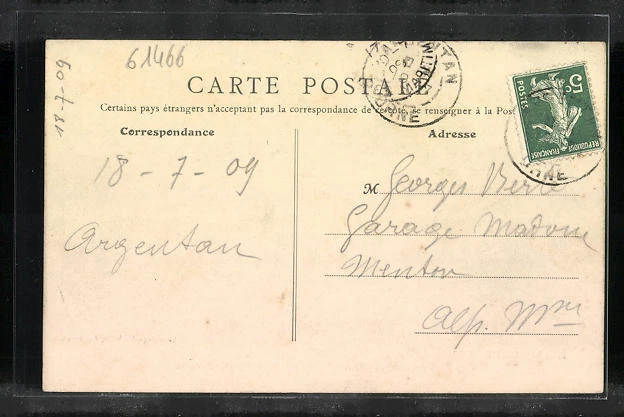 61466
18-7-09
CARTE POSTALE
Certains pays étrangers n'acceptent pas la correspondance de ce côté, se renseigner à la Poste
Correspondance
Adresse
18-7-09
Argentan
M Georges
Garage Madone
Menton
Alp. Mmes
5c
POSTES
REPUBLIQUE FRANÇAISE
ARGENTAN
ORNE